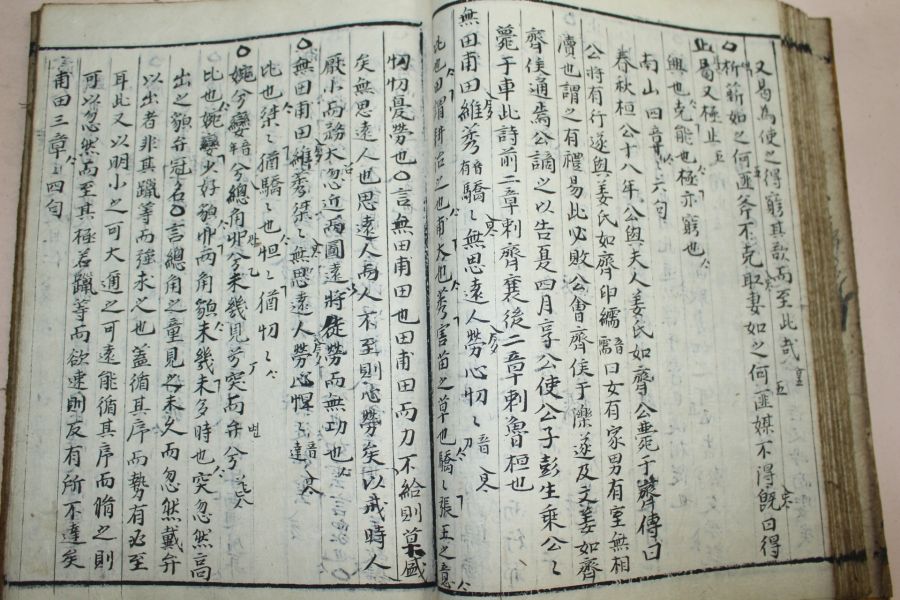 又曷爲使之得窮其欲而至此哉
○析薪如之何匪斧不克取妻如之何匪媒不得旣曰得
止曷又極止
興也克能也極亦窮也
南山四章章六句
春秋桓公十八年公與夫人姜氏如齊公薨于齊傳曰
公將有行遂與姜氏如齊申繻音需曰女有家男有室無相
瀆也謂之有禮易此必敗公會齊侯于濼遂及文姜如齊
齊侯通焉公謫之以告夏四月享公使公子彭生乘公〻
薨于車此詩前二章刺齊襄後二章刺魯桓也
無田甫田維莠音有驕〻無思遠人勞心忉〻音刀
比也田謂耕治之也甫大也莠害苗之草也驕〻張王之意
忉忉憂勞也○言無田甫田也田甫田而力不給則草盛
矣無思遠人也思遠人而人不至則心勞矣以戒時人
厭小而務大忽近而圖遠將徒勞而無功也
○無田甫田維莠桀〻無思遠人勞心怛〻音達
比也桀〻猶驕〻也怛〻猶忉〻
○婉兮孌兮總角丱兮未幾見兮突而弁兮
比也婉孌少好貌丱兩角貌未幾未多時也突忽然高
出之貌弁冠名○言總角之童見之未久而忽然戴弁
以出者非其躐等而強求之也蓋循其序而勢有必至
耳此又以明小之可大邇之可遠能循其序而脩之則
可以忽然而至其極若躐等而欲速則反有所不達矣
甫田三章〻四句